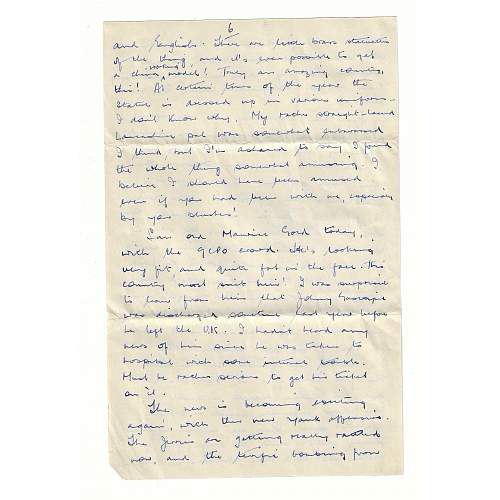 6
and English. There are little brass statuettes
of the thing and it's even possible to get
a china, working model! Truly an amazing country,
this! At certain times of the year the
statue is dressed up in various uniforms –
I don't know why. My rather straight-laced
Lancashire pal was somewhat embarrassed
I think, but I'm ashamed to say I found
the whole thing somewhat amusing. I
believe I should have been amused
even if you had been with me, especially
by your blushes!
Saw old Maurice Gord today,
with the crowd. He's looking
very fit, and quite fat in the face. This
country must suit him! I was surprised
to learn from him that Johnny
was discharged sometime last year before
he left the U.K. I hadn't heard any
news of him since he was taken to
hospital with some internal trouble.
Must be rather serious to get his ticket
on it.
The news is becoming exciting
again, with this new Yank offensive.
The Jerries are getting really rattled
now, and the terrific bombing from